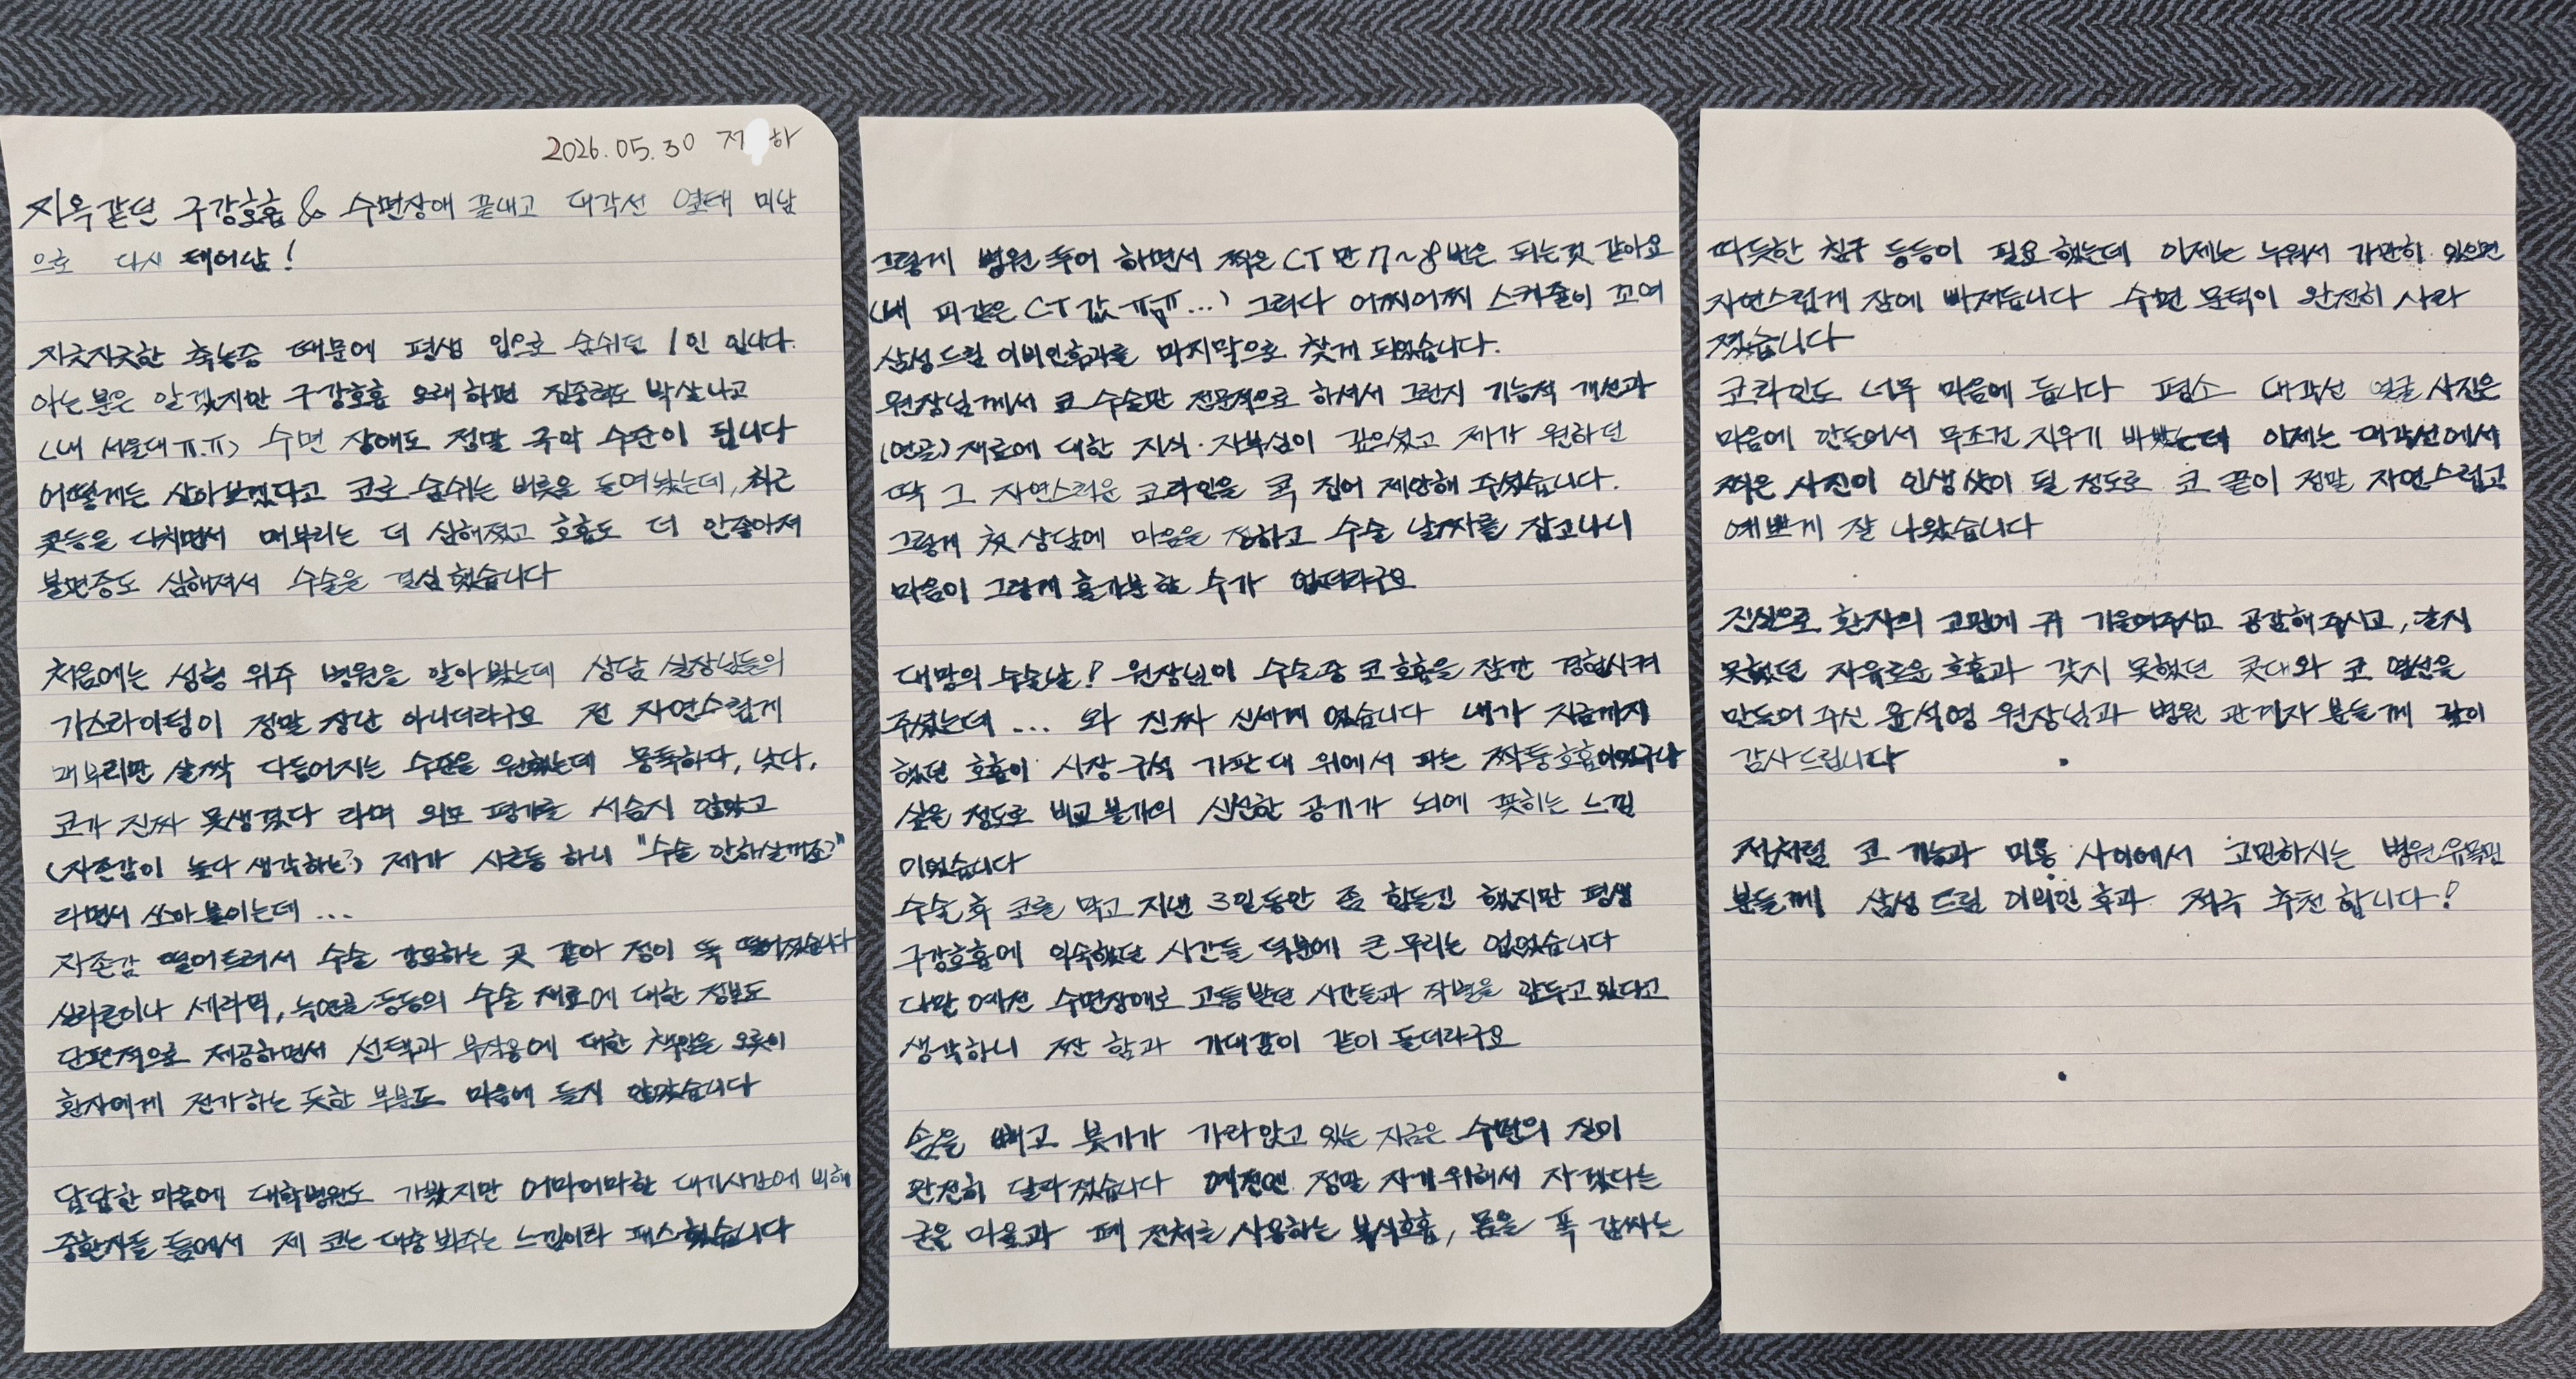 2026.05.30 저 하
지옥같던 구강호흡 & 수면장애 끝내고 대각선 옆태 미남
으로 다시 태어남!
지긋지긋한 축농증 때문에 평생 입으로 숨쉬던 1인 입니다.
아는 분은 알겠지만 구강호흡 오래하면 집중력도 박살나고
(내 서울대 ㅠ.ㅠ) 수면 장애도 정말 극악 수준이 됩니다
어떻게든 살아보겠다고 코로 숨쉬는 버릇을 들여놨는데, 최근
콧등을 다치면서 매부리는 더 심해졌고 호흡도 더 안좋아져
불면증도 심해져서 수술을 결심했습니다
처음에는 성형 위주 병원을 알아봤는데 상담 실장님들의
가스라이팅이 정말 장난 아니더라구요 전 자연스럽게
매부리만 살짝 다듬어지는 수준을 원했는데 뭉툭하다, 낮다,
코가 진짜 못생겼다 라며 외모 평가를 서슴지 않았고
(자존감이 높다 생각하는?) 제가 시큰둥 하니 "수술 안하실꺼죠?"
라면서 쏘아 붙이는데 ...
자존감 떨어트려서 수술 강요하는 곳 같아 정이 뚝 떨어졌습니다
실리콘이나 세라믹, 늑연골 등등의 수술 재료에 대한 정보도
단편적으로 제공하면서 선택과 부작용에 대한 책임을 오롯이
환자에게 전가하는 듯한 부분도 마음에 들지 않았습니다
답답한 마음에 대학병원도 가봤지만 어마어마한 대기시간에 비해
중환자들 틈에서 제 코는 대충 봐주는 느낌이라 패스했습니다
그렇게 병원 투어 하면서 찍은 CT만 7~8번은 되는것 같아요
(내 피같은 CT값 ㅠㅠ...) 그러다 어찌어찌 스케줄이 꼬여
삼성드림 이비인후과를 마지막으로 찾게 되었습니다.
원장님께서 코 수술만 전문적으로 하셔서 그런지 기능적 개선과
(연골) 재료에 대한 지식·자부심이 깊으셨고 제가 원하던
딱 그 자연스러운 코라인을 콕 집어 제안해 주셨습니다.
그렇게 첫 상담에 마음을 정하고 수술 날짜를 잡고나니
마음이 그렇게 홀가분할 수가 없더라구요
대망의 수술날! 원장님이 수술중 코 호흡을 잠깐 경험시켜
주셨는데 ... 와 진짜 신세계 였습니다 내가 지금까지
했던 호흡이 시장 구석 가판대 위에서 파는 짝퉁호흡이었구나
싶을 정도로 비교불가의 신선한 공기가 뇌에 꽂히는 느낌
이었습니다
수술 후 코를 막고 지낸 3일동안 좀 힘들긴 했지만 평생
구강호흡에 익숙했던 시간들 덕분에 큰 무리는 없었습니다
다만 예전 수면장애로 고통받던 시간들과 작별을 앞두고 있다고
생각하니 짠 함과 기대감이 같이 들더라구요
솜을 빼고 붓기가 가라앉고 있는 지금은 수면의 질이
완전히 달라졌습니다 예전엔 정말 자기 위해서 자겠다는
굳은 마음과 폐 전체를 사용하는 복식호흡, 몸을 폭 감싸는
따듯한 침구 등등이 필요했는데 이제는 누워서 가만히 있으면
자연스럽게 잠에 빠져듭니다 수면 문턱이 완전히 사라
졌습니다
코라인도 너무 마음에 듭니다 평소 대각선 얼굴 사진은
마음에 안들어서 무조건 지우기 바빴는데 이제는 대각선에서
찍은 사진이 인생샷이 될 정도로 코 끝이 정말 자연스럽고
예쁘게 잘 나왔습니다
진심으로 환자의 고민에 귀 기울여주시고 공감해주시고, 쉬지
못했던 자유로운 호흡과 갖지 못했던 콧대와 코 옆선을
만들어 주신 윤석영 원장님과 병원 관계자 분들께 깊이
감사드립니다
저처럼 코 기능과 미용 사이에서 고민하시는 병원유목민
분들께 삼성드림 이비인후과 적극 추천합니다!